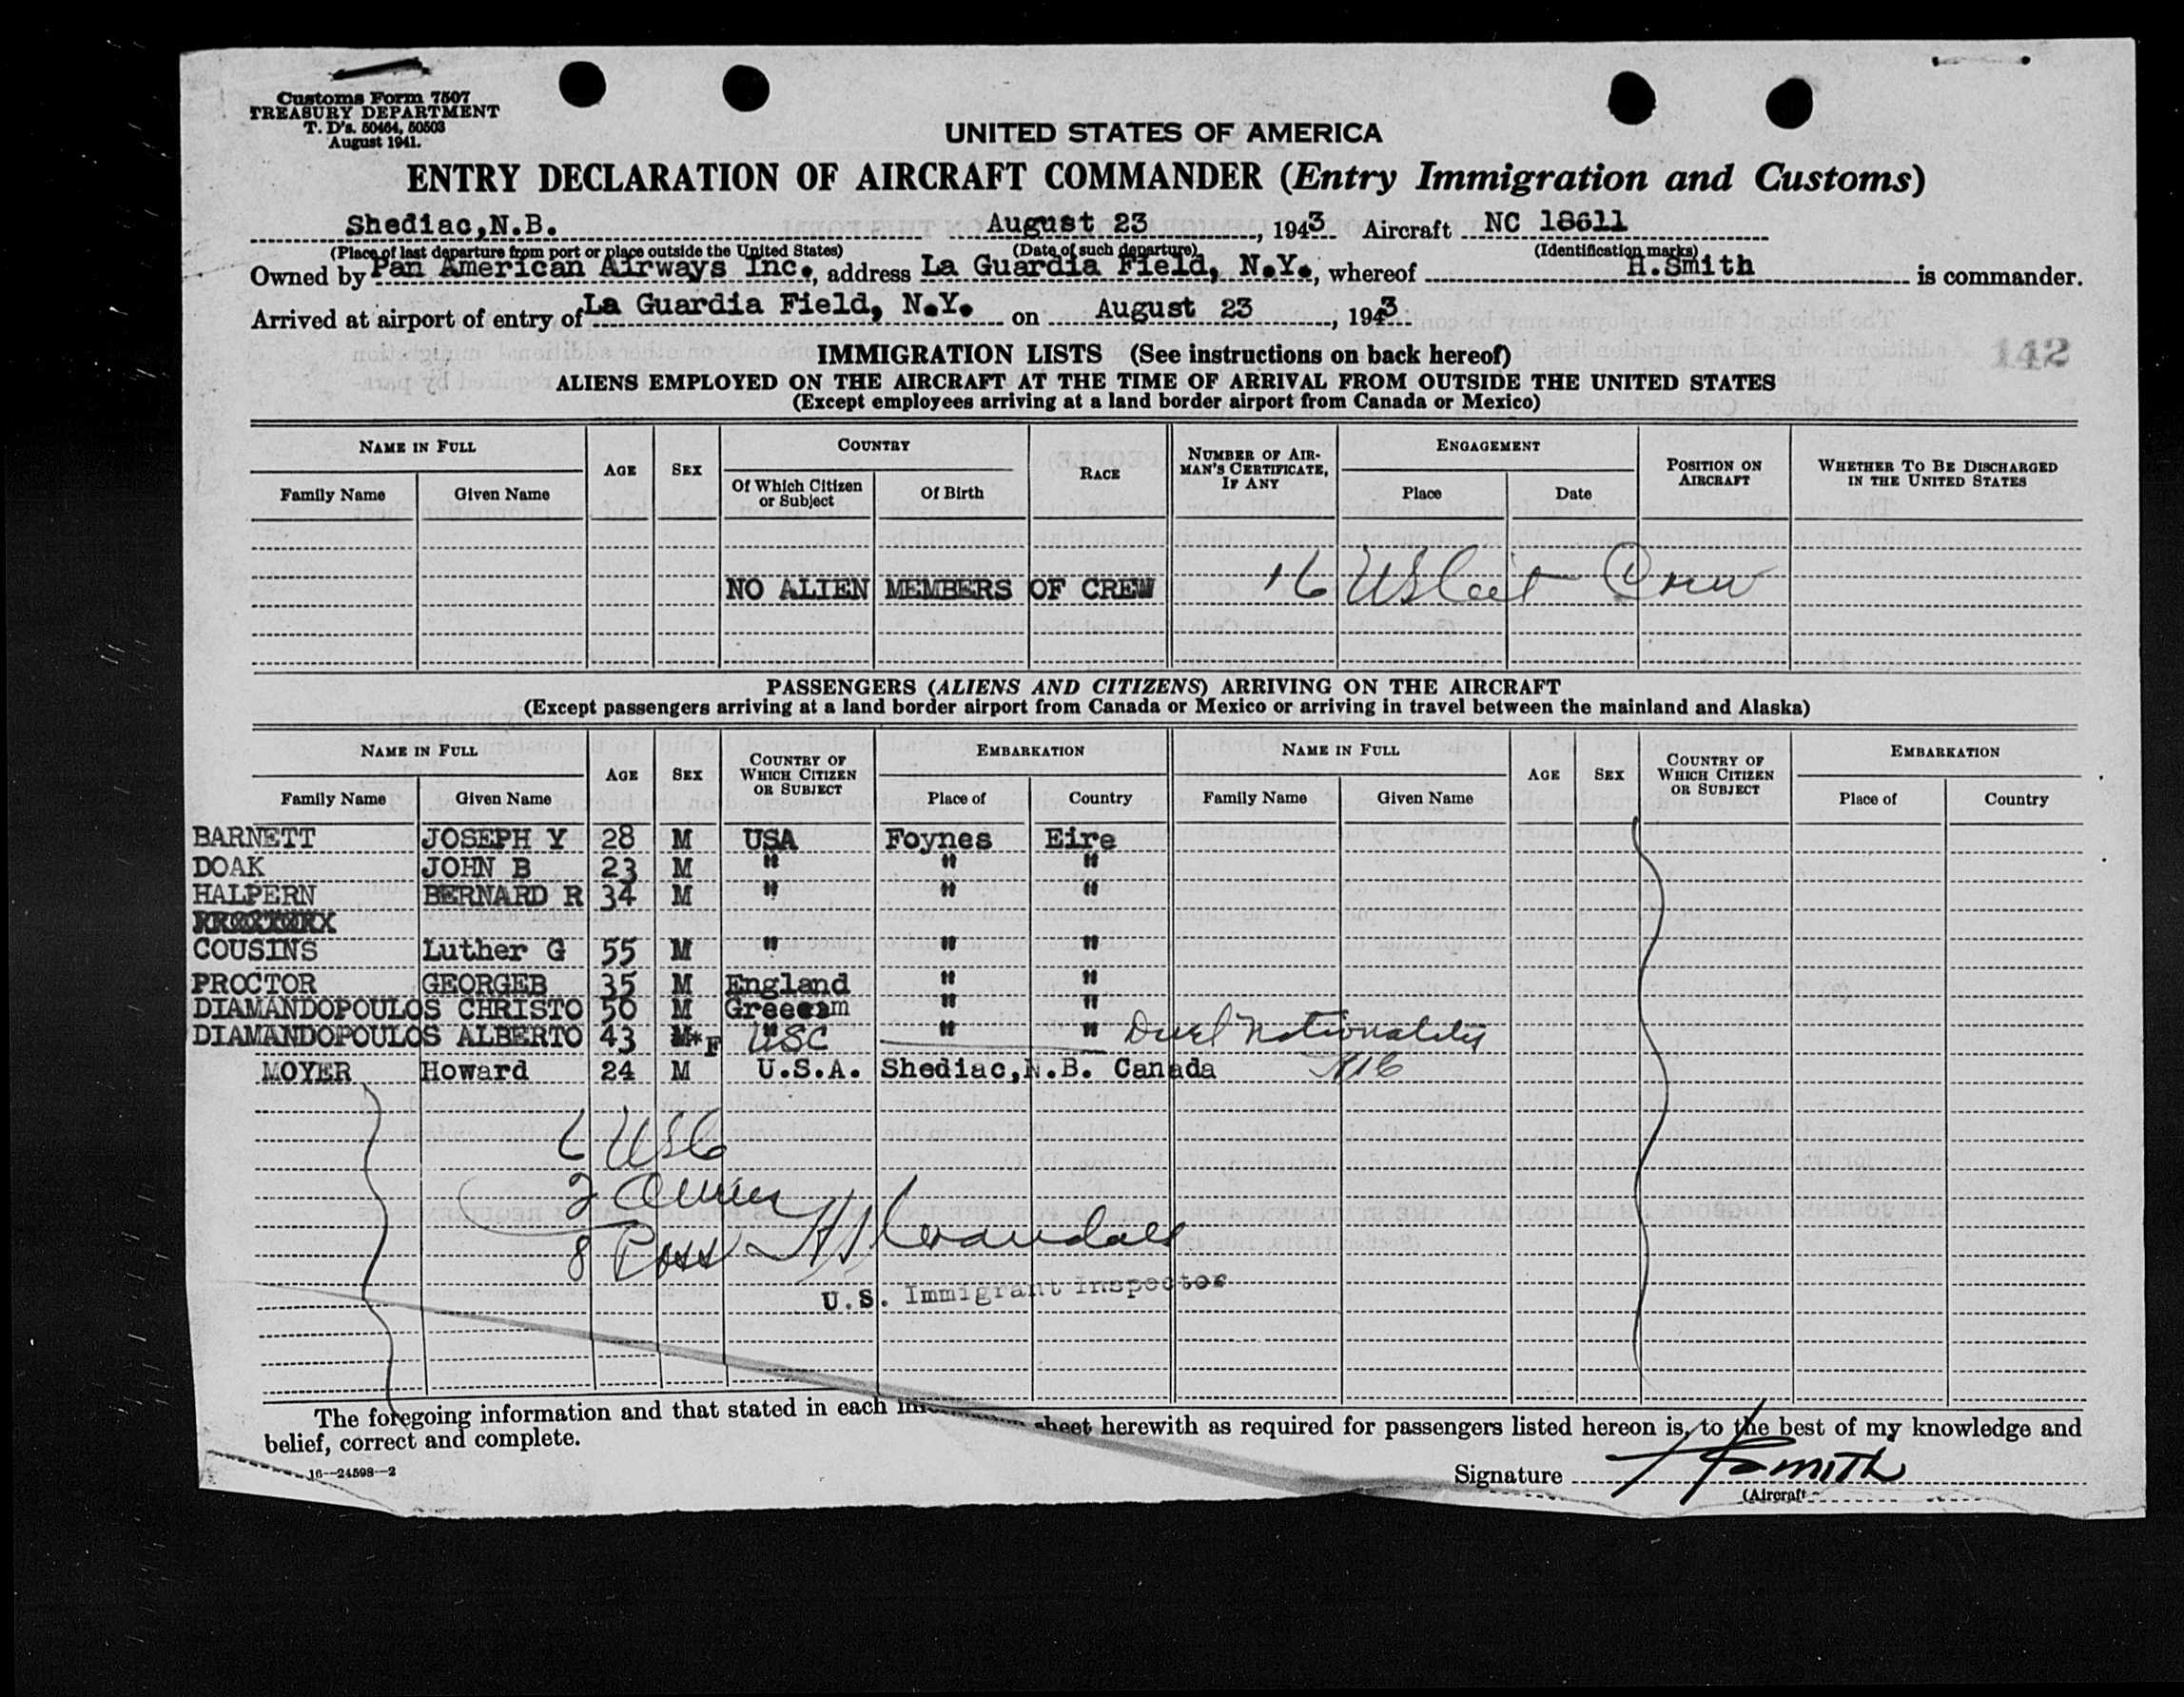 Customs Form 7507
TREASURY DEPARTMENT
T. D's. 50464, 50503
August 1941.
UNITED STATES OF AMERICA
ENTRY DECLARATION OF AIRCRAFT COMMANDER (Entry Immigration and Customs)
Shediac,N.B. August 23, 1943 Aircraft NC 18611
(Place of last departure from port or place outside the United States) (Date of such departure) (Identification marks)
Owned by Pan American Airways Inc., address La Guardia Field, N.Y., whereof H.Smith is commander.
Arrived at airport of entry of La Guardia Field, N.Y. on August 23, 1943
142
IMMIGRATION LISTS (See instructions on back hereof)
ALIENS EMPLOYED ON THE AIRCRAFT AT THE TIME OF ARRIVAL FROM OUTSIDE THE UNITED STATES
(Except employees arriving at a land border airport from Canada or Mexico)
NAME IN FULL AGE SEX COUNTRY RACE NUMBER OF AIRMAN'S CERTIFICATE, IF ANY ENGAGEMENT POSITION ON AIRCRAFT WHETHER TO BE DISCHARGED IN THE UNITED STATES
Family Name Given Name Of Which Citizen or Subject Of Birth Place Date
NO ALIEN MEMBERS OF CREW 16 US Cit Crew
PASSENGERS (ALIENS AND CITIZENS) ARRIVING ON THE AIRCRAFT
(Except passengers arriving at a land border airport from Canada or Mexico or arriving in travel between the mainland and Alaska)
NAME IN FULL AGE SEX COUNTRY OF WHICH CITIZEN OR SUBJECT EMBARKATION NAME IN FULL AGE SEX COUNTRY OF WHICH CITIZEN OR SUBJECT EMBARKATION
Family Name Given Name Place of Country Family Name Given Name Place of Country
BARNETT JOSEPH Y 28 M USA Foynes Eire
DOAK JOHN B 23 M " " "
HALPERN BERNARD R 34 M " " "
COUSINS Luther G 55 M " " "
PROCTOR GEORGEB 35 M England " "
DIAMANDOPOULOS CHRISTO 50 M " "
DIAMANDOPOULOS ALBERTO 43 M*F USC " " Duel Nationality
MOYER Howard 24 M U.S.A. Shediac,N.B. Canada
6 USC
2 Aliens
8 Pass
U.S. Immigrant Inspector
The foregoing information and that stated in each sheet herewith as required for passengers listed hereon is, to the best of my knowledge and
belief, correct and complete.
16—24598-2
Signature H Smith
(Aircraft